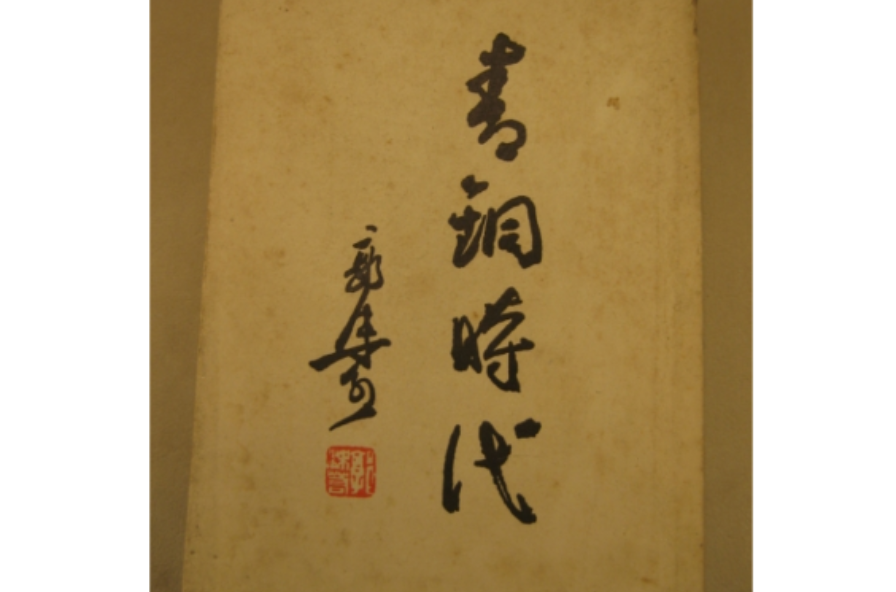 青銅時代
郭沫若